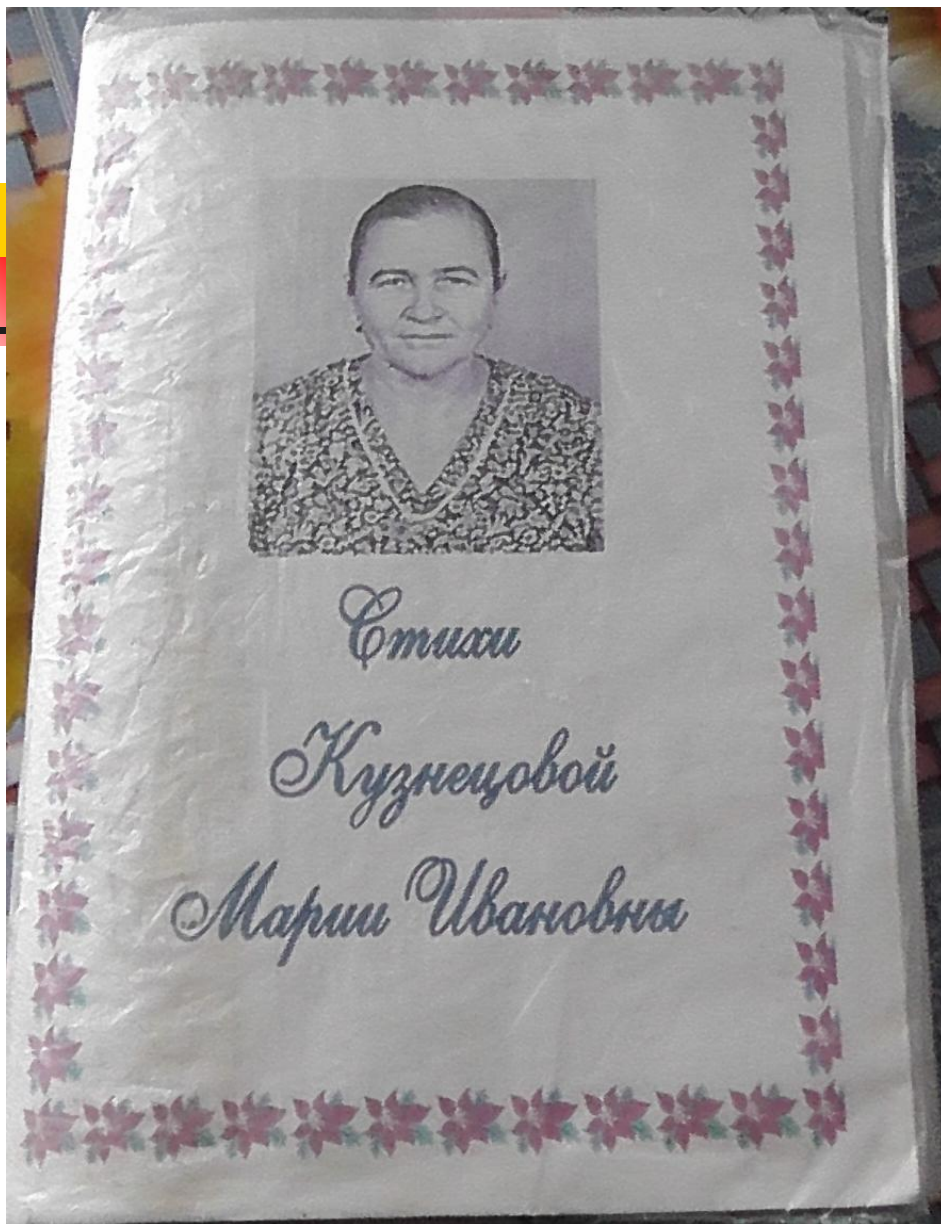 Стихи
Кузнецовой
Марии Ивановны